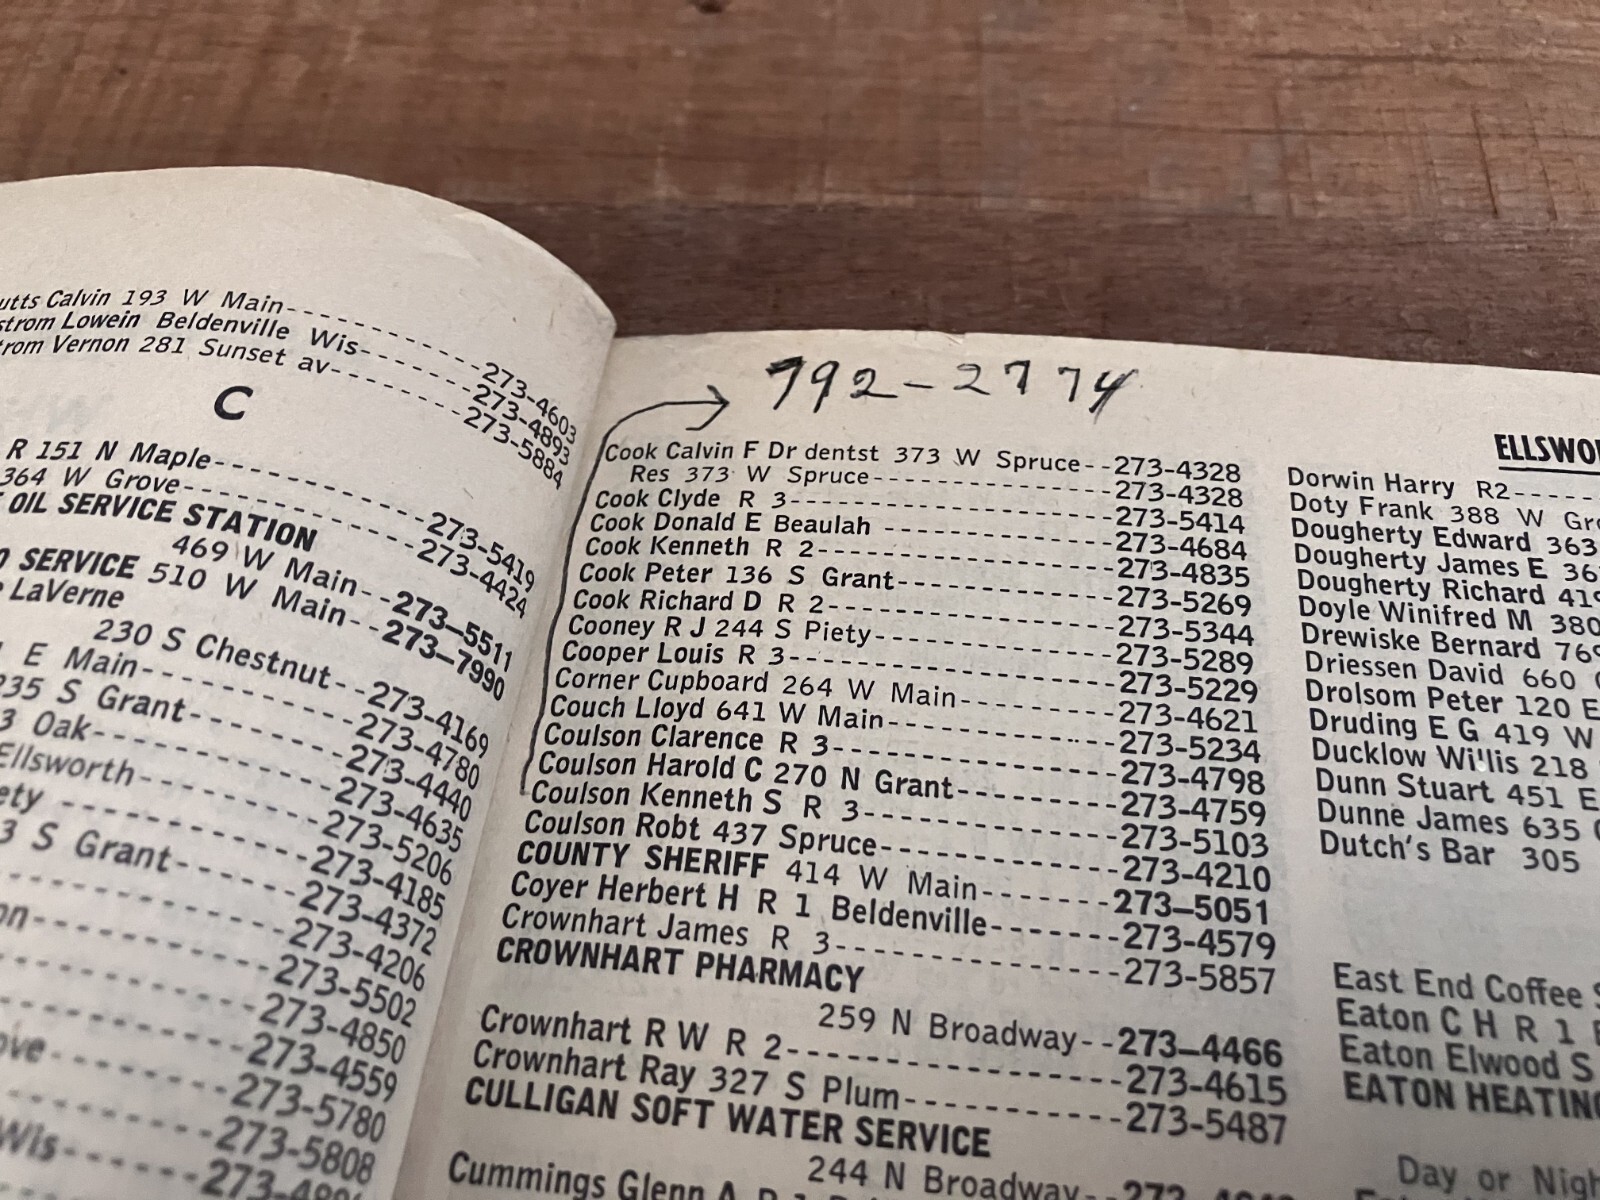 Calvin 193 W Main--------------------273-4603
Lowein Beldenville Wis-----------273-4893
Vernon 281 Sunset av-------------273-5884
C
R 151 N Maple-------------------273-5419
364 W Grove---------------------273-4424
OIL SERVICE STATION
469 W Main--273-5511
SERVICE 510 W Main--273-7990
LaVerne
230 S Chestnut--273-4169
E Main----------------273-4780
S Grant-------------273-4440
Oak-------------------273-4635
Ellsworth-------------273-5206
273-4185
S Grant-------------273-4372
273-4206
273-5502
273-4850
273-4559
273-5780
273-5808
Wis
792-2774
Cook Calvin F Dr dentst 373 W Spruce--273-4328
Res 373 W Spruce------------------273-4328
Cook Clyde R 3------------------------273-5414
Cook Donald E Beaulah ----------------273-4684
Cook Kenneth R 2----------------------273-4835
Cook Peter 136 S Grant----------------273-5269
Cook Richard D R 2--------------------273-5344
Cooney R J 244 S Piety----------------273-5289
Cooper Louis R 3----------------------273-5229
Corner Cupboard 264 W Main------------273-4621
Couch Lloyd 641 W Main----------------273-5234
Coulson Clarence R 3------------------273-4798
Coulson Harold C 270 N Grant----------273-4759
Coulson Kenneth S R 3-----------------273-5103
Coulson Robt 437 Spruce---------------273-4210
COUNTY SHERIFF 414 W Main-------273-5051
Coyer Herbert H R 1 Beldenville-------273-4579
Crownhart James R 3-------------------273-5857
CROWNHART PHARMACY
259 N Broadway--273-4466
Crownhart R W R 2---------------------273-4615
Crownhart Ray 327 S Plum--------------273-5487
CULLIGAN SOFT WATER SERVICE
244 N Broadway
Cummings Glenn A
Dorwin Harry R2-----
Doty Frank 388 W
Dougherty Edward 363
Dougherty James E
Dougherty Richard
Doyle Winifred M 380
Drewiske Bernard
Driessen David 660
Drolsom Peter 120
Druding E G 419 W
Ducklow Willis 218
Dunn Stuart 451 E
Dunne James 635
Dutch's Bar 305
East End Coffee
Eaton C H R 1
Eaton Elwood S
EATON HEATING
Day or